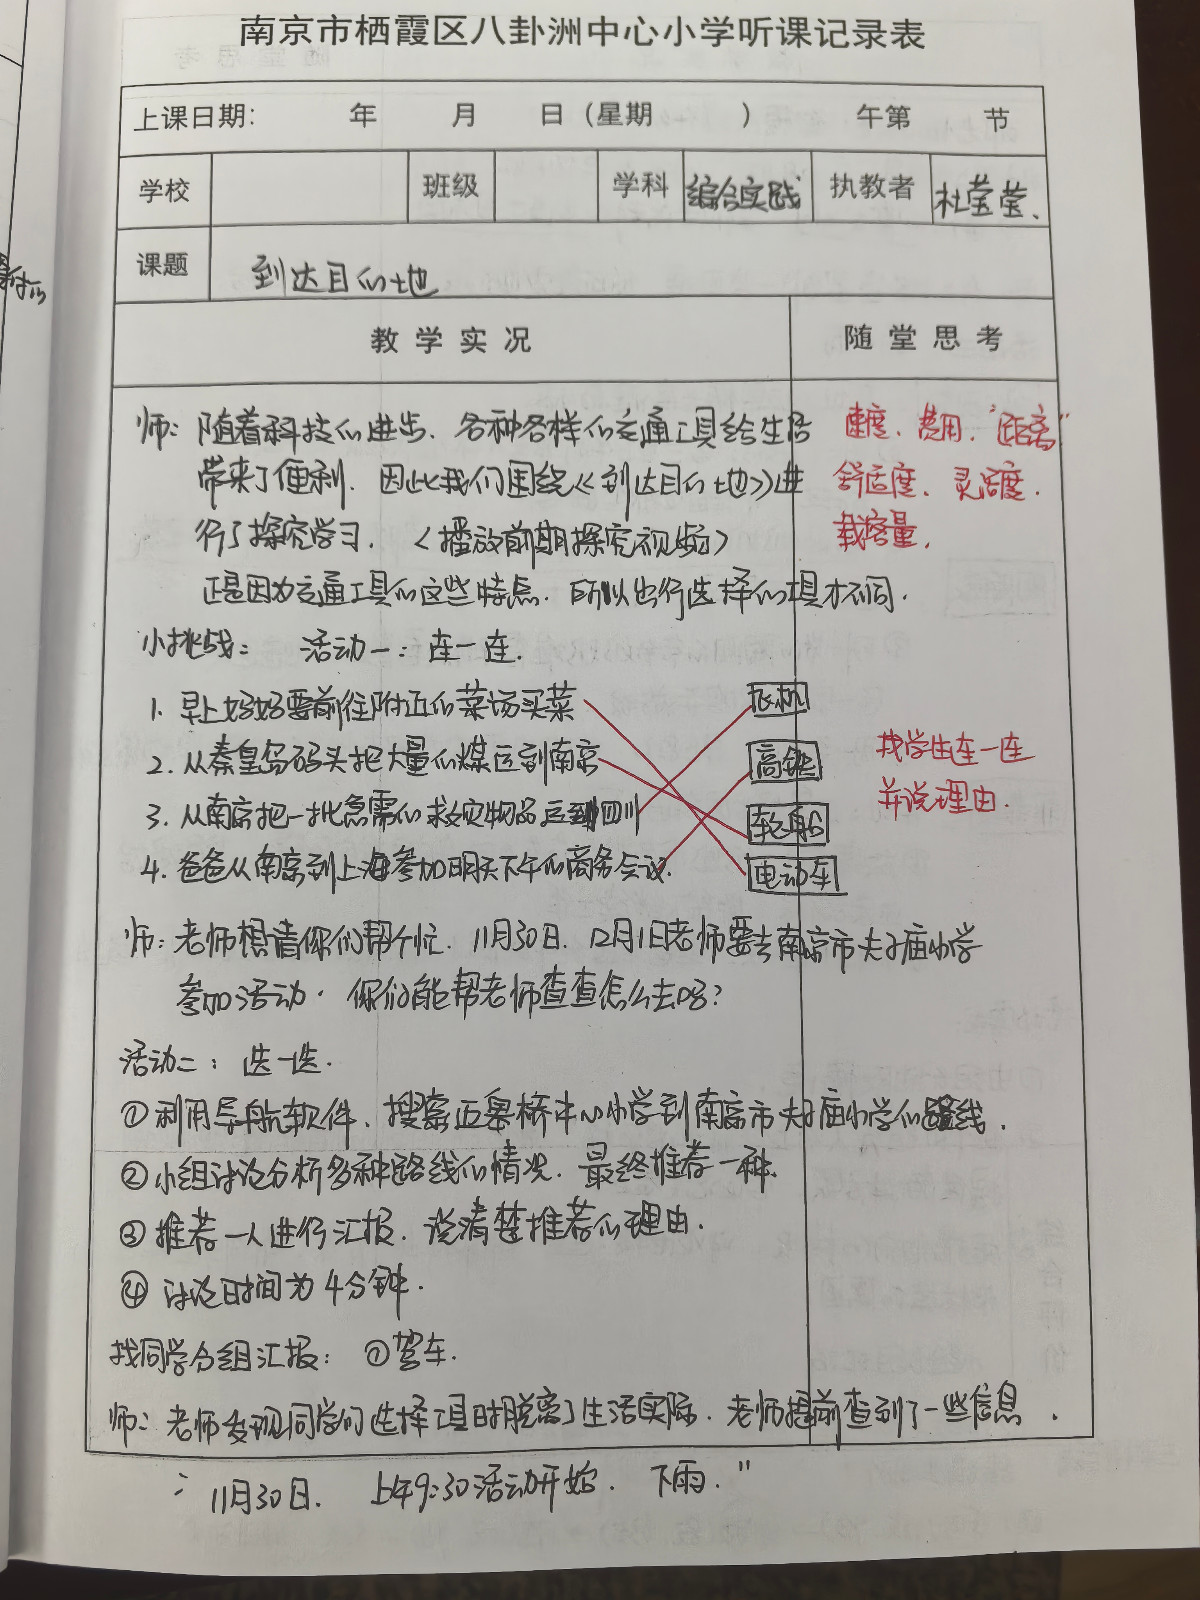 南京市栖霞区八卦洲中心小学听课记录表
上课日期： 年 月 日（星期 ） 午第 节
学校 班级 学科 综合实践 执教者 杜莹莹.
课题 到达目的地
教学实况 随堂思考
师：随着科技的进步．各种各样的交通工具给生活 速度．费用．“距离”
带来了便利．因此我们围绕《到达目的地》进 舒适度．灵活度．
行了探究学习．〈播放前期探究视频〉 载容量．
正是因为交通工具的这些特点．所以出行选择的工具才不同．
小挑战： 活动一：连一连．
1. 早上奶奶要前往附近的菜场买菜 飞机
2. 从秦皇岛码头把大量的煤运到南京 高铁 找学生连一连
3. 从南京把一批急需的救灾物品运到四川 轮船 并说理由．
4. 爸爸从南京到上海参加明天下午的商务会议． 电动车
师：老师想请你们帮个忙．11月30日．12月1日老师要去南京市夫子庙小学
参加活动．你们能帮老师查查怎么去吗？
活动二：选一选．
①利用导航软件．搜索迈皋桥中心小学到南京市夫子庙小学的路线．
②小组讨论分析多种路线的情况．最终推荐一种．
③推荐一人进行汇报．说清楚推荐的理由．
④讨论时间为4分钟．
找同学分组汇报：①驾车．
师：老师发现同学们选择工具时脱离了生活实际．老师提前查到了一些信息．
“11月30日． 上午9:30活动开始． 下雨．”